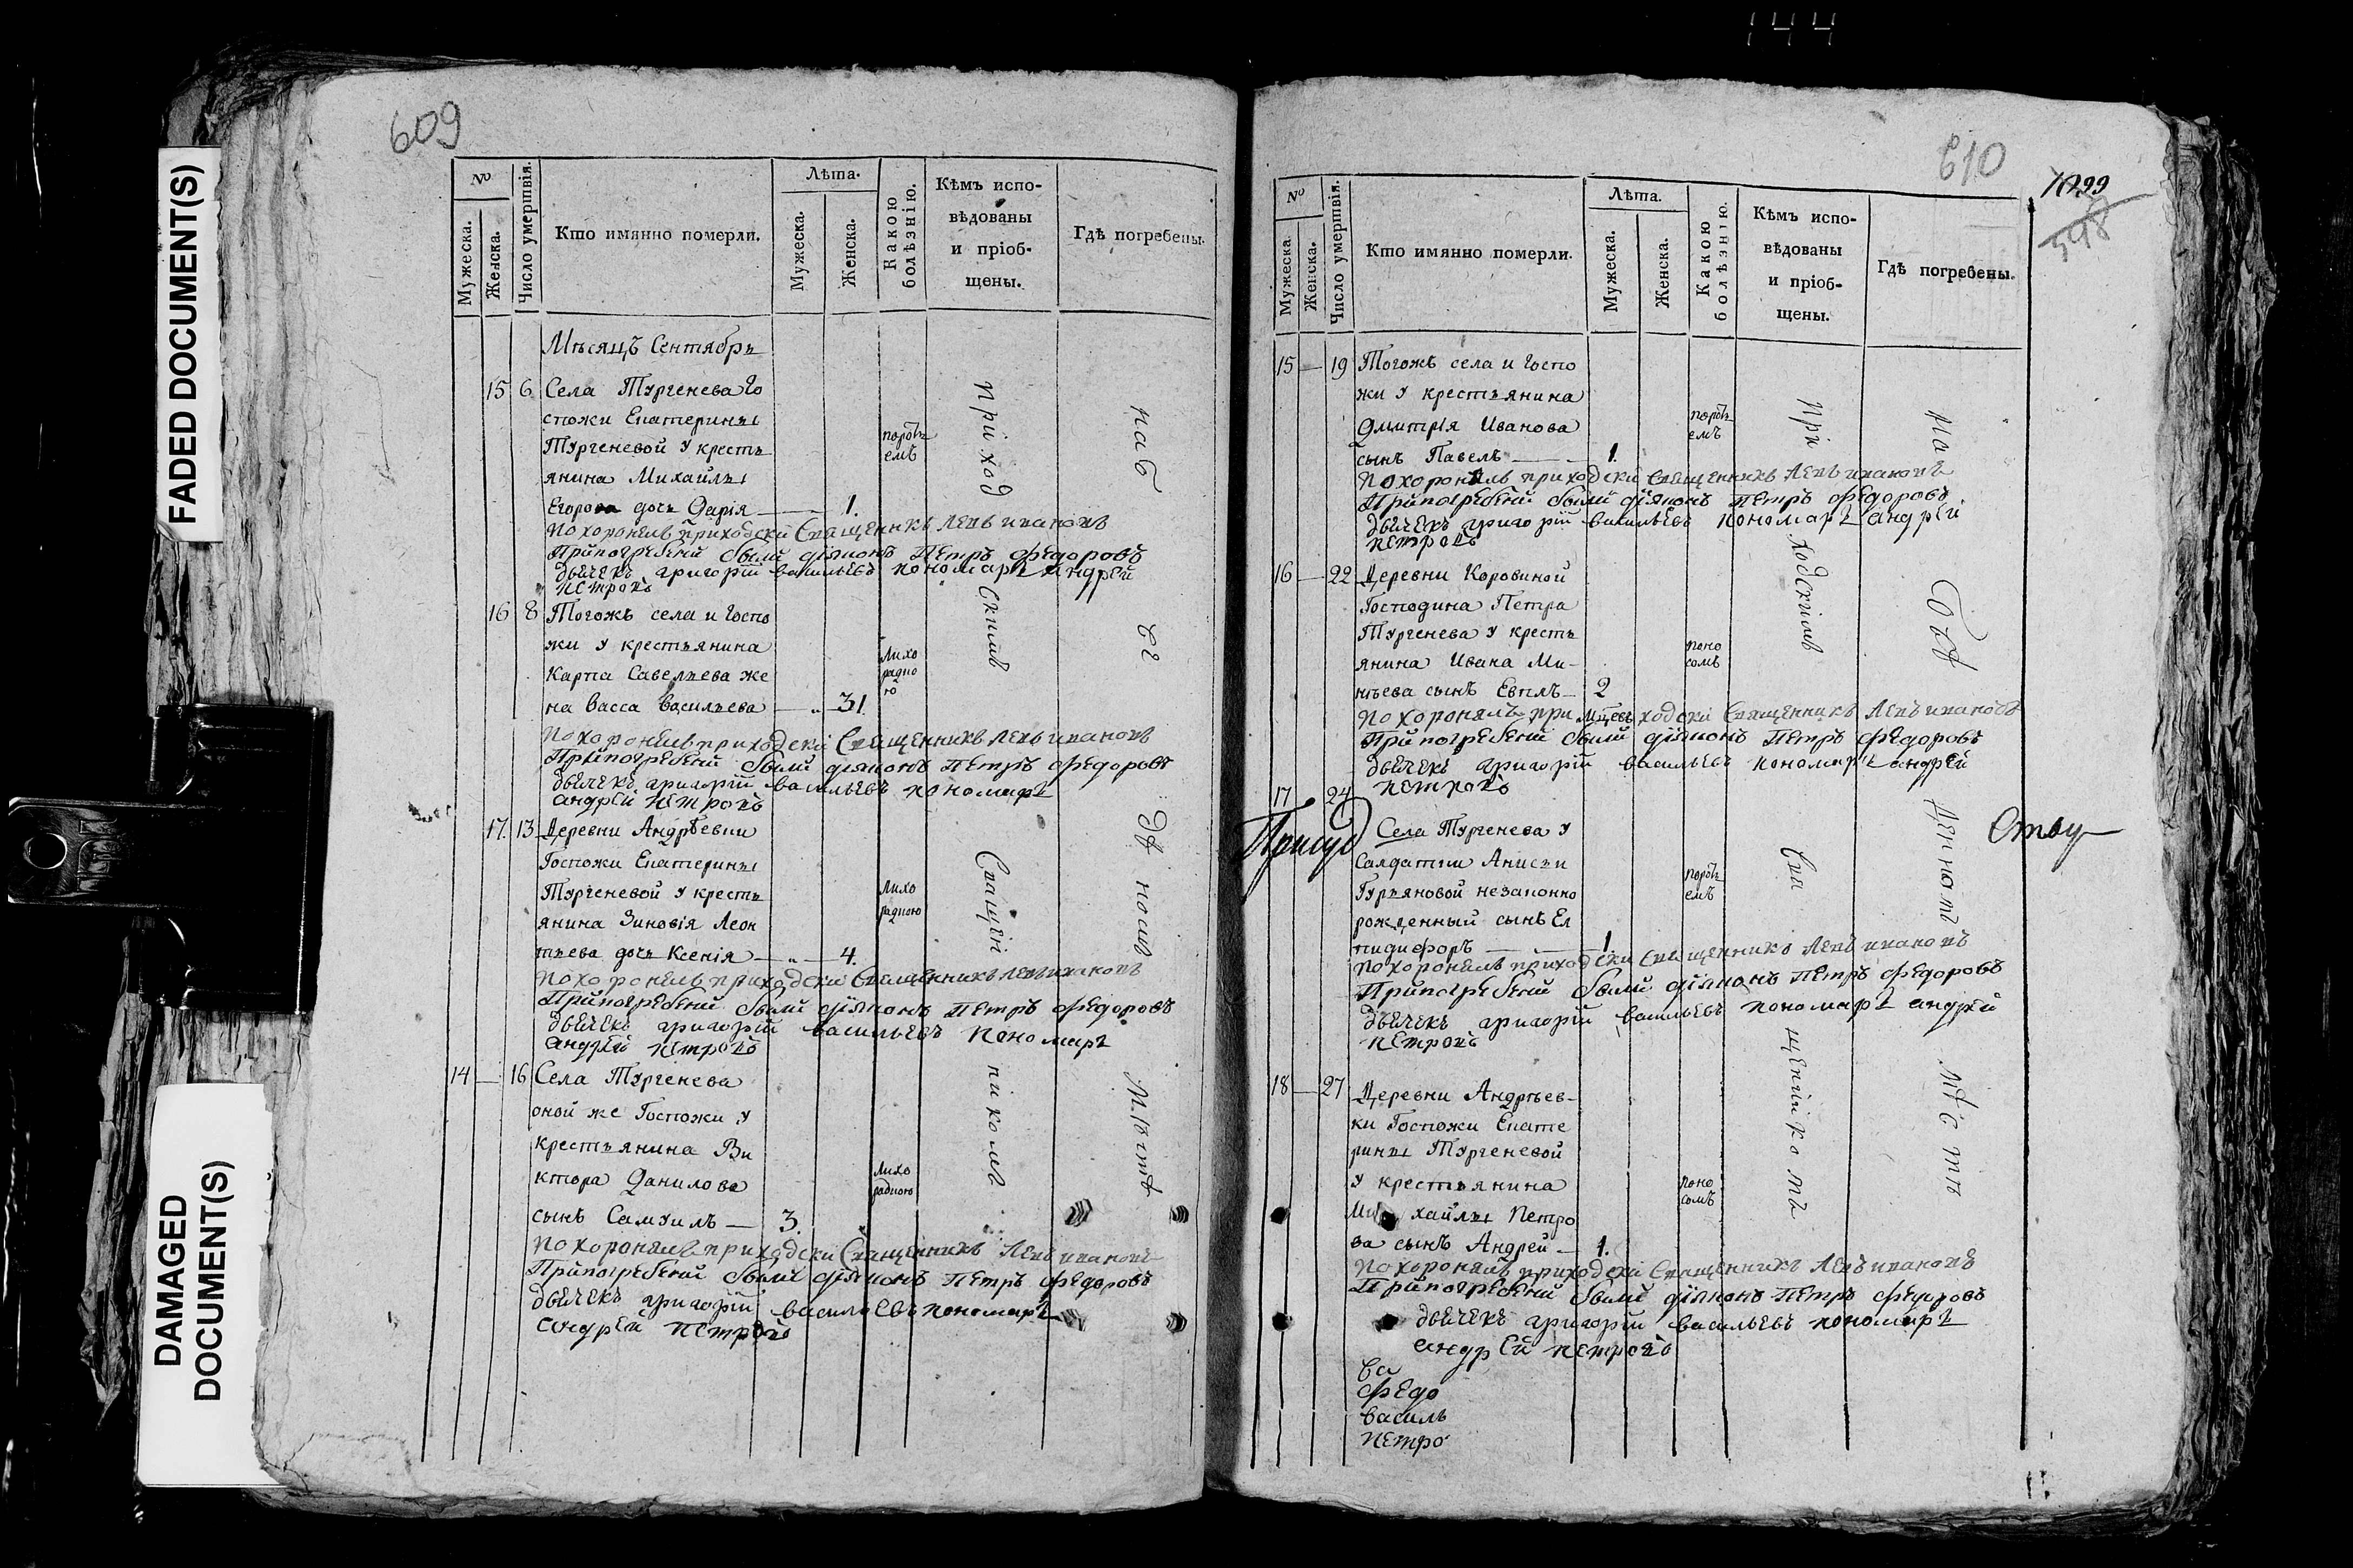 144
FADED DOCUMENT(S)
DAMAGED
DOCUMENT(S)
609
№
Мужеска.
Женска.
Число умертвія.
Кто имянно померли.
Лѣта.
Мужеска.
Женска.
Какою
болѣзнію.
Кѣмъ испо-
вѣдованы
и пріоб-
щены.
Гдѣ погребены.
Мѣсяцъ Сентябрь
15 6 Села Тургенева Го
спожи Екатерины
Тургеневой у кресть
янина Михайлы
Егорова дочь Дарія — 1.
породъ
емъ
Похоронялъ приходски Священникъ Левъ ивановъ
При погребеніи были діяконъ Петръ Федоровъ
дьячекъ григорій васильевъ пономарь андрей
петровъ
16 8 Тогожъ села и Госпо
жи у крестьянина
Карпа Савельева же
на Васса Васильева — „ — 31
Лихо
радко
ю
Похоронялъ приходски Священникъ Левъ ивановъ
При погребеніи были діяконъ Петръ Федоровъ
дьячекъ григорій васильевъ пономарь
андрей петровъ
17. 13 Деревни Андрѣевки
Госпожи Екатерины
Тургеневой у кресть
янина Зиновія Леон
тьева дочь Ксенія — „ — 4.
Лихо
радкою
Похоронялъ приходски Священникъ Левъ ивановъ
При погребеніи были діяконъ Петръ Федоровъ
дьячекъ григорій васильевъ пономарь
андрей петровъ
14 — 16 Села Тургенева
оной же Госпожи у
крестьянина Ви
ктора Данилова
сынъ Самуилъ — 3.
лихо
радкою
Похоронялъ приходски Священникъ Левъ ивановъ
При погребеніи были діяконъ Петръ Федоровъ
дьячекъ григорій васильевъ пономарь
андрей петровъ
приход
скимъ
Священ
никомъ
на об
мѣстѣ
610
1099
398
№
Мужеска.
Женска.
Число умертвія.
Кто имянно померли.
Лѣта.
Мужеска.
Женска.
Какою
болѣзнію.
Кѣмъ испо-
вѣдованы
и пріоб-
щены.
Гдѣ погребены.
15 — 19 Тогожъ села и Госпо
жи у крестьянина
Дмитрія Иванова
сынъ Павелъ — 1.
породъ
емъ
Похоронялъ приходски Священникъ Левъ ивановъ
При погребеніи были діяконъ Петръ Федоровъ
дьячекъ григорій васильевъ пономарь андрей
петровъ
16 — 22 Деревни Коровиной
Господина Петра
Тургенева у кресть
янина Ивана Ми-
нѣева сынъ Евплъ — 2
поно
сомъ
Похоронялъ при ходски Священникъ Левъ ивановъ
При погребеніи были діяконъ Петръ Федоровъ
дьячекъ григорій васильевъ пономарь андрей
петровъ
17 24
Села Тургенева у
Салдатки Анисьи
Гурьяновой незаконно
рожденный сынъ Ел
пидифоръ — 1.
породъ
емъ
Похоронялъ приходски Священникъ Левъ ивановъ
При погребеніи были діяконъ Петръ Федоровъ
дьячекъ григорій васильевъ пономарь андрей
петровъ
18 — 27 Деревни Андрѣев-
ки Госпожи Екате
рины Тургеневой
у крестьянина
Михайлы Петро
ва сынъ Андрей — 1.
поно
сомъ
Похоронялъ приходски Священникъ Левъ ивановъ
При погребеніи были діяконъ Петръ Федоровъ
дьячекъ григорій васильевъ пономарь
андрей петровъ
ва
Федо
василь
петро
при
ходскимъ
Свя
щенникомъ
на
Об
мѣстѣ